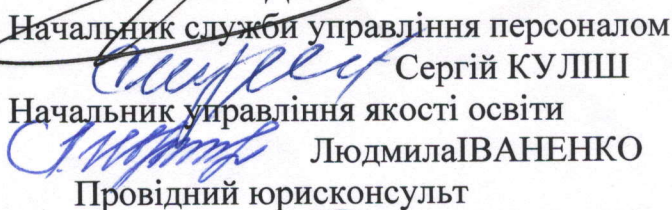 Начальник служби управління персоналом
Сергій КУЛІШ
Начальник управління якості освіти
ЛюдмилаІВАНЕНКО
Провідний юрисконсульт